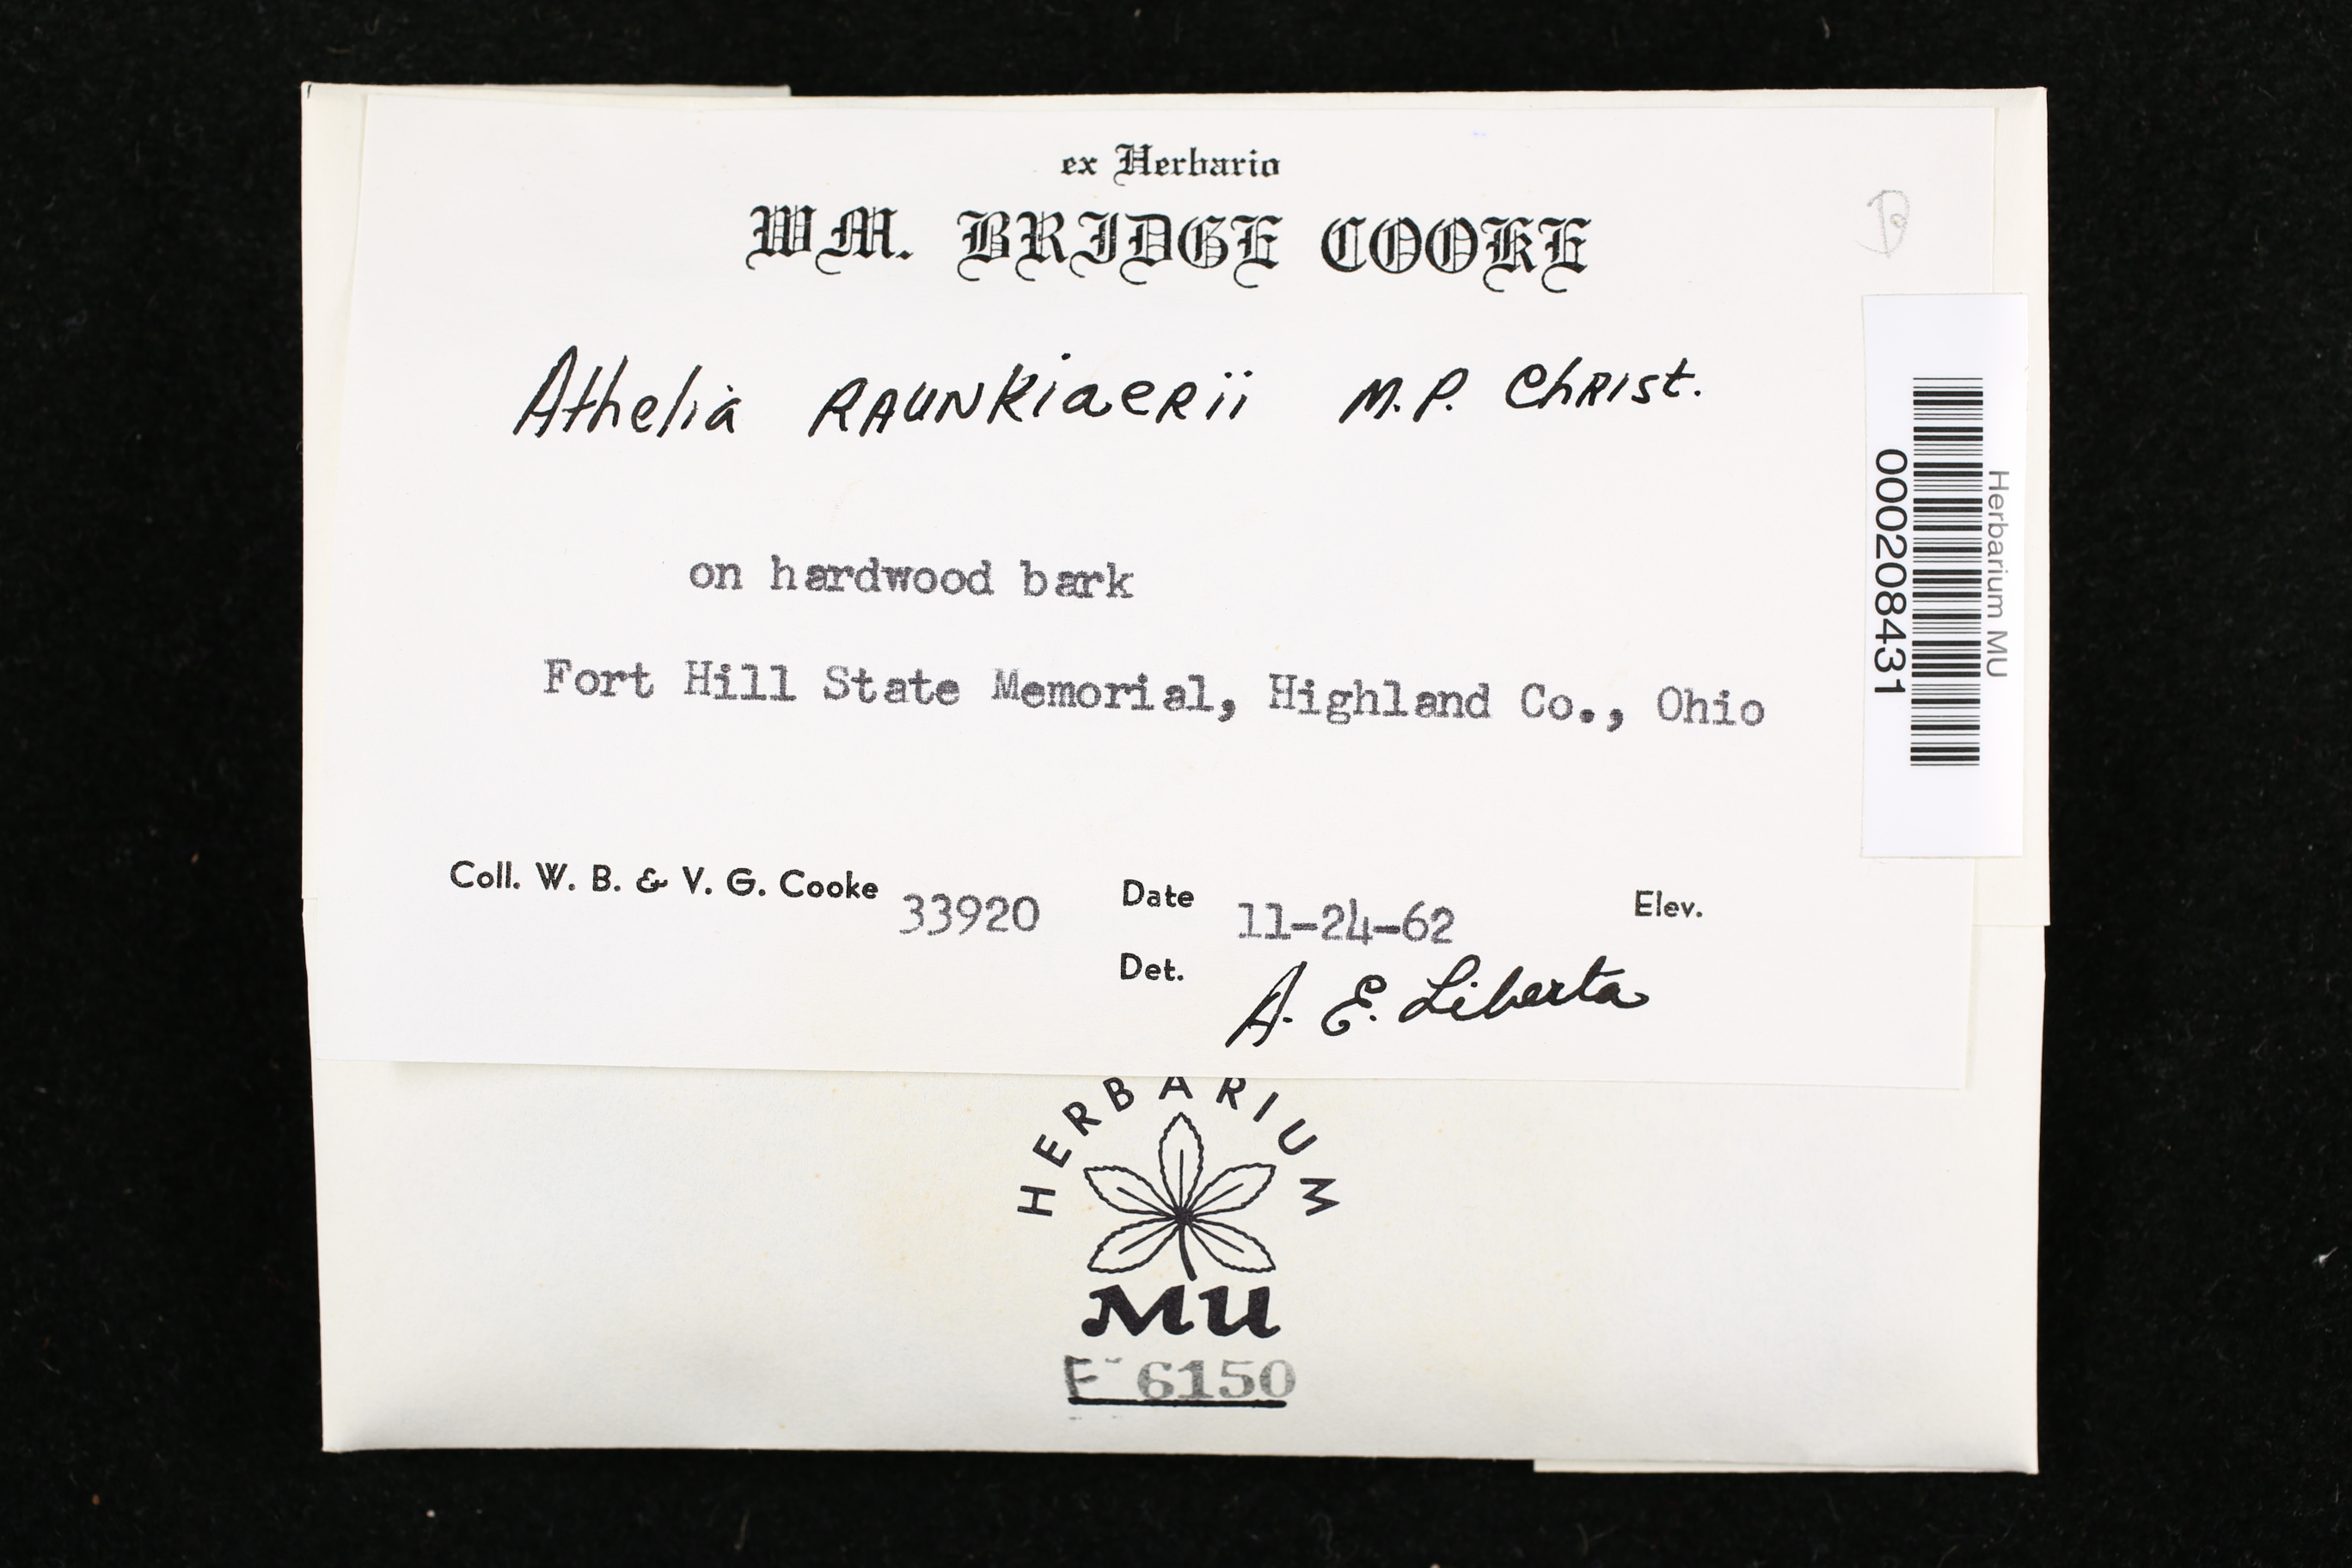 ex Herbario
WM. BRIDGE COOKE
Athelia Raunkiaerii M.P. Christ.
on hardwood bark
Fort Hill State Memorial, Highland Co., Ohio
Coll. W. B. & V. G. Cooke 33920 Date 11-24-62 Elev.
Det. A. E. Liberta
Herbarium MU
000208431
HERBARIUM
MU
F 6150